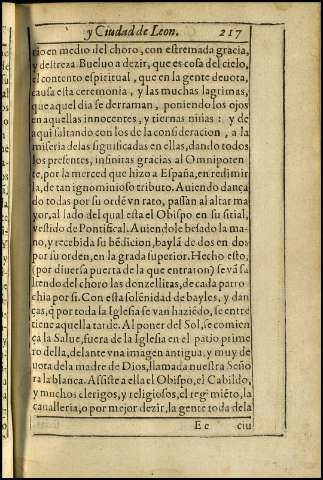 y Ciudad de Leon. 217
rio en medio del choro, con estremada gracia,
y destreza. Bueluo a dezir, que es cosa del cielo,
el contento espiritual, que en la gente deuota,
causa esta ceremonia, y las muchas lagrimas,
que aquel dia se derraman, poniendo los ojos
en aquellas innocentes, y tiernas niñas: y de
aqui saltando con los de la consideracion, a la
miseria delas significadas en ellas, dando todos
los presentes, infinitas gracias al Omnipoten
te, por la merced que hizo a España, en redimir
la, de tan ignominioso tributo. Auiendo dança
do todas por su ordẽ vn rato, passan al altar ma
yor, al lado del qual esta el Obispo en su sitial,
vestido de Pontifical. Auiendole besado la ma-
no, y recebida su bẽdicion, baylã de dos en dos
por su orden, en la grada superior. Hecho esto,
(por diuersa puerta de la que entraron) se vã sa
liendo del choro las donzellitas, de cada parro-
chia por si. Con esta solẽnidad de bayles, y dan
ças, q̃ por toda la Iglesia se van haziẽdo, se entre
tiene aquella tarde. Al poner del Sol, se comien
ça la Salue, fuera de la Iglesia en el patio prime
ro della, delante vna imagen antigua, y muy de
uota dela madre de Dios, llamada nuestra Seño
ra la blanca. Assiste a ella el Obispo, el Cabildo,
y muchos clerigos, y religiosos, el regimiẽto, la
caualleria, o por mejor dezir, la gente toda dela
Ee ciu